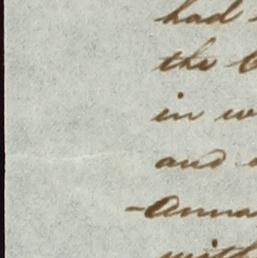 had
the
in
and
-Anna
with